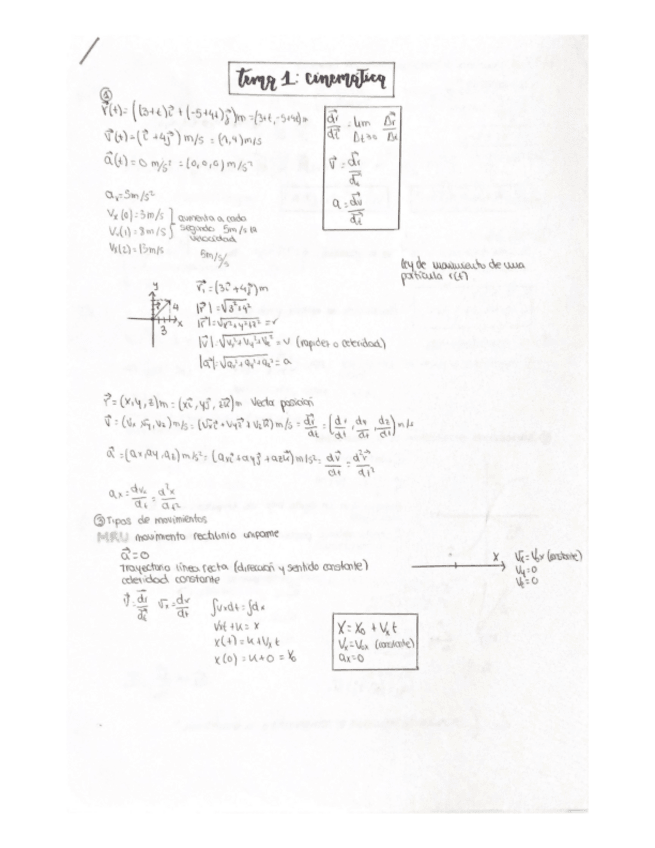 tema 1: cinemática
①
r⃗(t) = ((3+t)i⃗ + (-5+4t)j⃗)m = (3+t, -5+4t)m
v⃗(t) = (i⃗ + 4j⃗) m/s = (1,4) m/s
a⃗(t) = 0 m/s² = (0,0,0) m/s²
dr⃗/dt = lim Δt→0 Δr⃗/Δt
v⃗ = dr⃗/dt
a = dv⃗/dt
aₓ = 5m/s²
Vₓ(0) = 3m/s
Vₓ(1) = 8m/s
Vₓ(2) = 13m/s
aumenta a cada
segundo 5m/s la
velocidad
5m/s/s
ley de movimiento de una
partícula r(t)
y
4
x
3
r⃗₁ = (3i⃗ + 4j⃗)m
|r⃗| = √3²+4²
|r⃗| = √x²+y²+z² = r
|v⃗| = √Vₓ²+Vy²+Vz² = v (rapidez o celeridad)
|a⃗| = √aₓ²+ay²+az² = a
r⃗ = (x,y,z)m = (xi⃗, yj⃗, zk⃗)m Vector posición
v⃗ = (Vx, Vy, Vz) m/s = (Vxi⃗ + Vyj⃗ + Vzk⃗) m/s = dr⃗/dt = (dx/dt, dy/dt, dz/dt) m/s
a⃗ = (ax, ay, az) m/s² = (axi⃗ + ayj⃗ + azk⃗) m/s² = dv⃗/dt = d²r⃗/dt²
ax = dvx/dt = d²x/dt²
③ Tipos de movimientos
MRU movimiento rectilinio uniforme
a⃗ = 0
Trayectoria línea recta (dirección y sentido constante)
celeridad constante
x
Vx = V₀x (constante)
Vy = 0
Vz = 0
v⃗ = dr⃗/dt vx = dx/dt ∫vxdt = ∫dx
Vxt + k = x
x(t) = k + Vx t
x(0) = k + 0 = x₀
X = X₀ + Vx t
Vx = V₀x (constante)
ax = 0